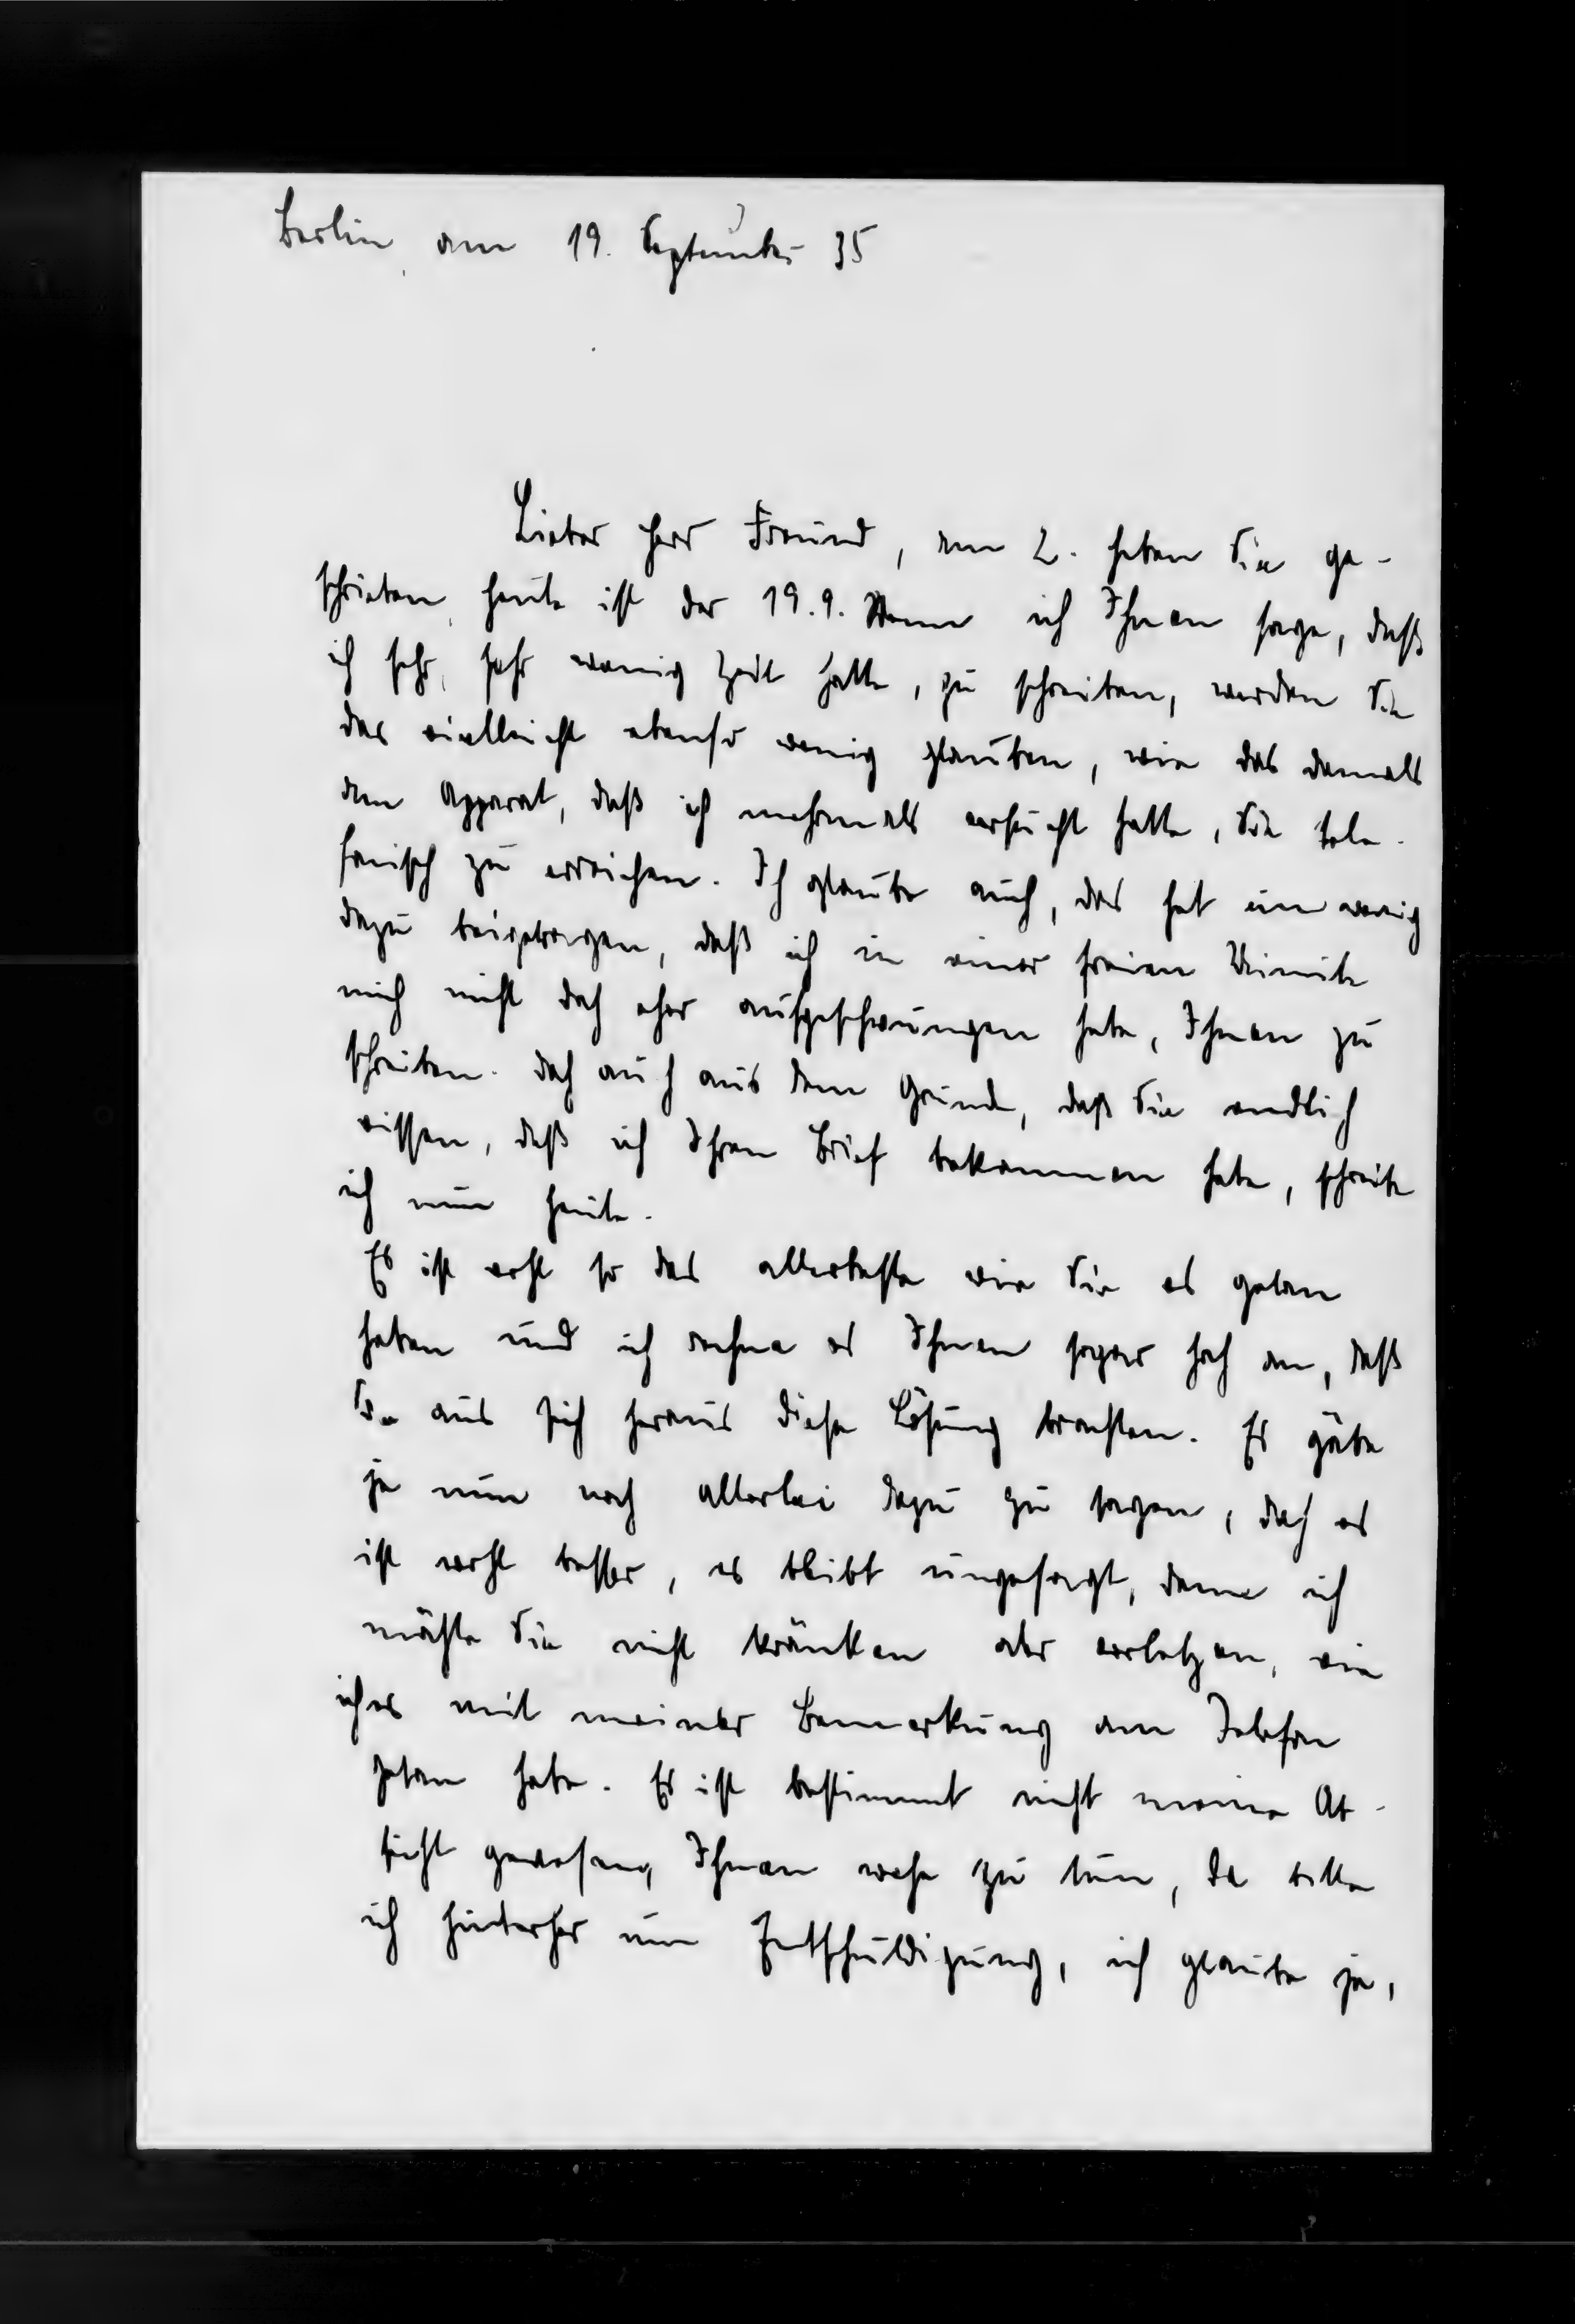 Berlin, am 19. September 35
Lieber Herr Freund, am 2. haben Sie ge-
schrieben, heute ist der 19.9. Wenn ich Ihnen sage, daß
ich sehr, sehr wenig Zeit hatte, zu schreiben, werden Sie
das vielleicht ebenso wenig glauben, wie das damals
am Apparat, daß ich mehrmals versucht hatte, Sie tele-
fonisch zu erreichen. Ich glaube auch, das hat ein wenig
dazu beigetragen, daß ich in einer freien Minute
mich nicht doch eher aufgeschwungen habe, Ihnen zu
schreiben. Doch auch aus dem Grunde, daß Sie endlich
wissen, daß ich Ihren Brief bekommen habe, schreibe
ich nun heute.
Es ist wohl so das allerbeste wie Sie es getan
haben und ich rechne es Ihnen sogar hoch an, daß
Sie aus sich heraus diese Lösung brachten. Es gäbe
ja nun noch allerlei dazu zu sagen, doch es
ist wohl besser, es bleibt ungesagt, denn ich
möchte Sie nicht kränken oder verletzen, wie
ich es mit meiner Bemerkung am Telefon
getan habe. Es ist bestimmt nicht meine Ab-
sicht gewesen, Ihnen wehe zu tun, da bitte
ich hinterher um Entschuldigung, ich glaube ja,